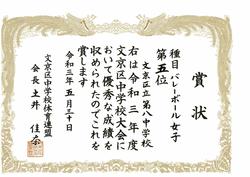 賞状
種目 バレーボール女子
第五位
文京区立第八中学校
右は令和三年度
文京区中学校大会に
おいて優秀な成績を
収められたのでこれを
賞します
令和三年五月三十日
文京区中学校体育連盟
会長 土井